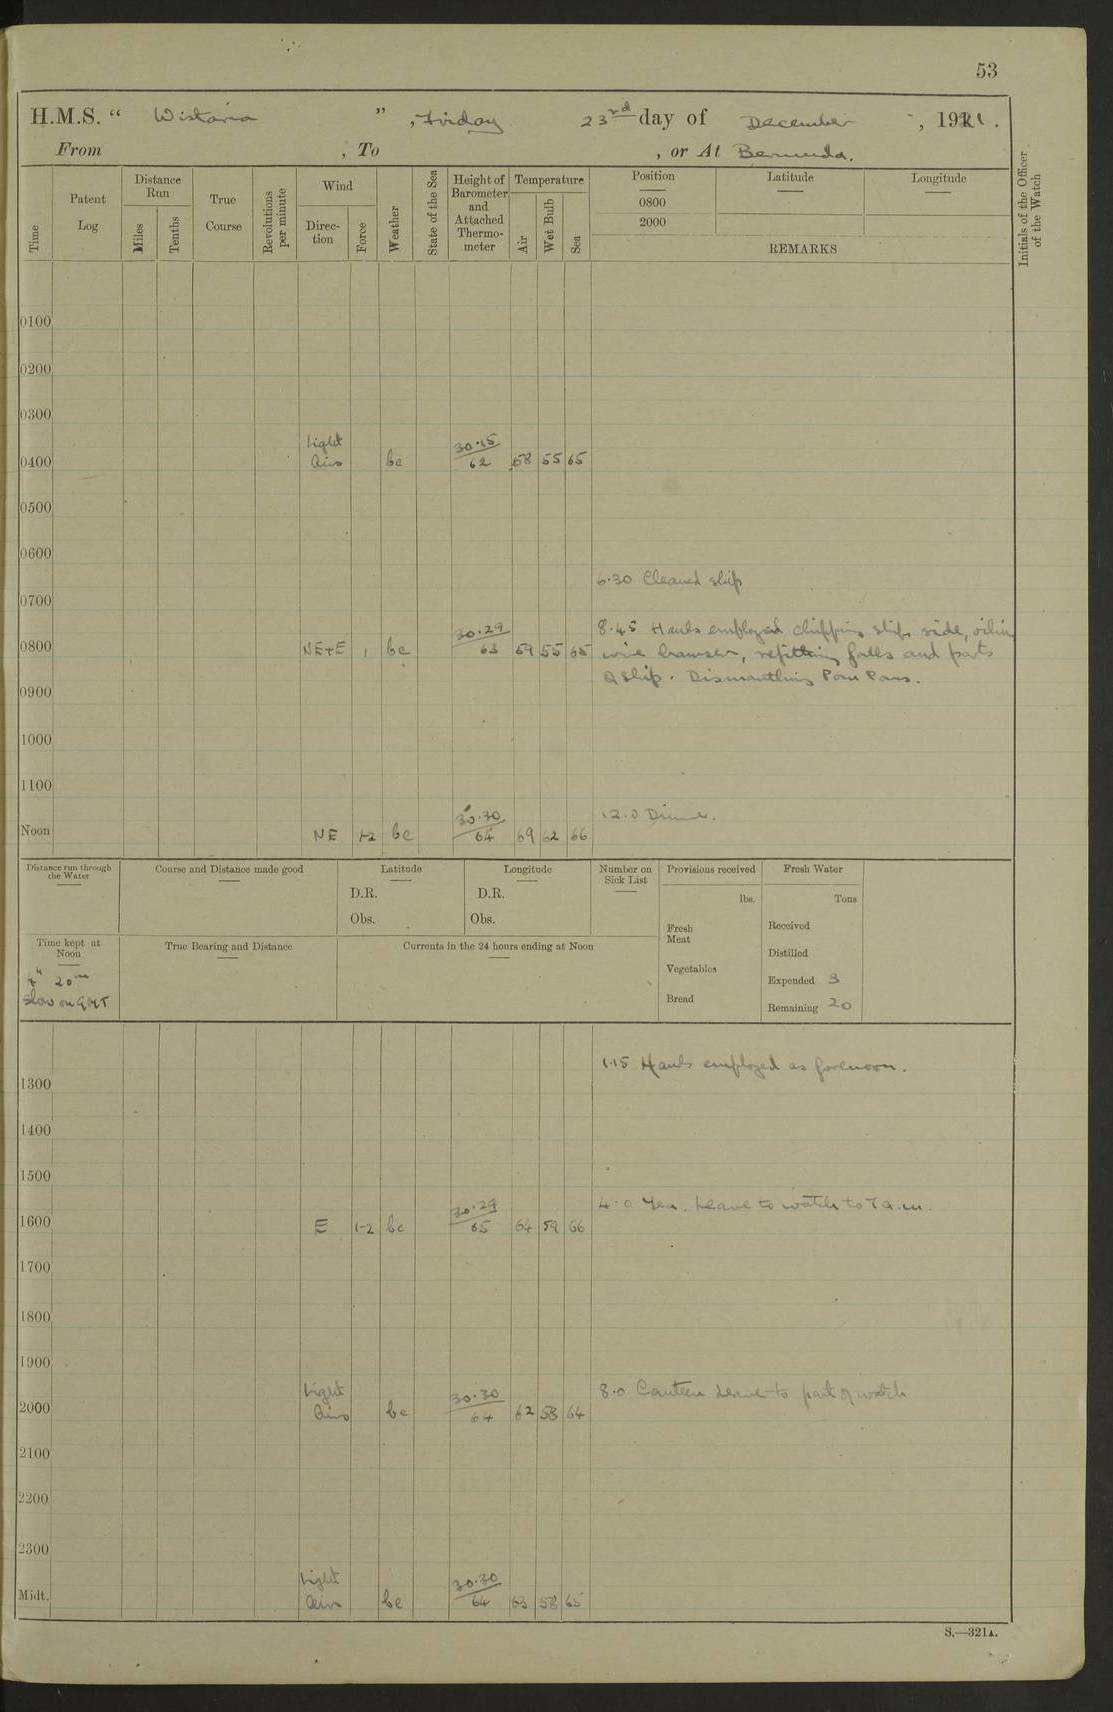 53
H.M.S. “ Wistaria ” , Friday 23rd day of December , 1921.
From , To , or At Bermuda.
Time
Patent Log
Distance Run
Miles
Tenths
True Course
Revolutions per minute
Wind
Direction
Force
Weather
State of the Sea
Height of Barometer and Attached Thermometer
Temperature
Air
Wet Bulb
Sea
Position
0800
2000
Latitude
Longitude
REMARKS
Initials of the Officer of the Watch
0100
0200
0300
Light 30.15
0400 Airs bc 62 58 55 65
0500
0600
6.30 Cleaned ship
0700
30.29 8.45 Hands employed chipping ship's side, oiling
0800 NE+E 1 bc 63 59 55 65 wire hawser, refitting falls and parts
Q Ship. Dismantling Pom Poms.
0900
1000
1100
30.30 12.0 Dinner.
Noon NE 1-2 bc 64 69 62 66
Distance run through the Water
Course and Distance made good
Latitude
D.R.
Obs.
Longitude
D.R.
Obs.
Number on Sick List
Provisions received
lbs.
Fresh Meat
Vegetables
Bread
Fresh Water
Tons
Received
Distilled
Expended 3
Remaining 20
Time kept at Noon
4h 20m
Slow on GMT
True Bearing and Distance
Currents in the 24 hours ending at Noon
1.15 Hands employed as forenoon.
1300
1400
1500
30.29 4.0 Leave to watch to 7 a.m.
1600 E 1-2 bc 65 64 59 66
1700
1800
1900
Light 30.30 8.0 Canteen Leave to part of watch
2000 Airs bc 64 62 58 64
2100
2200
2300
Light 30.30
Midt. Airs bc 64 63 58 65
S.—321A.